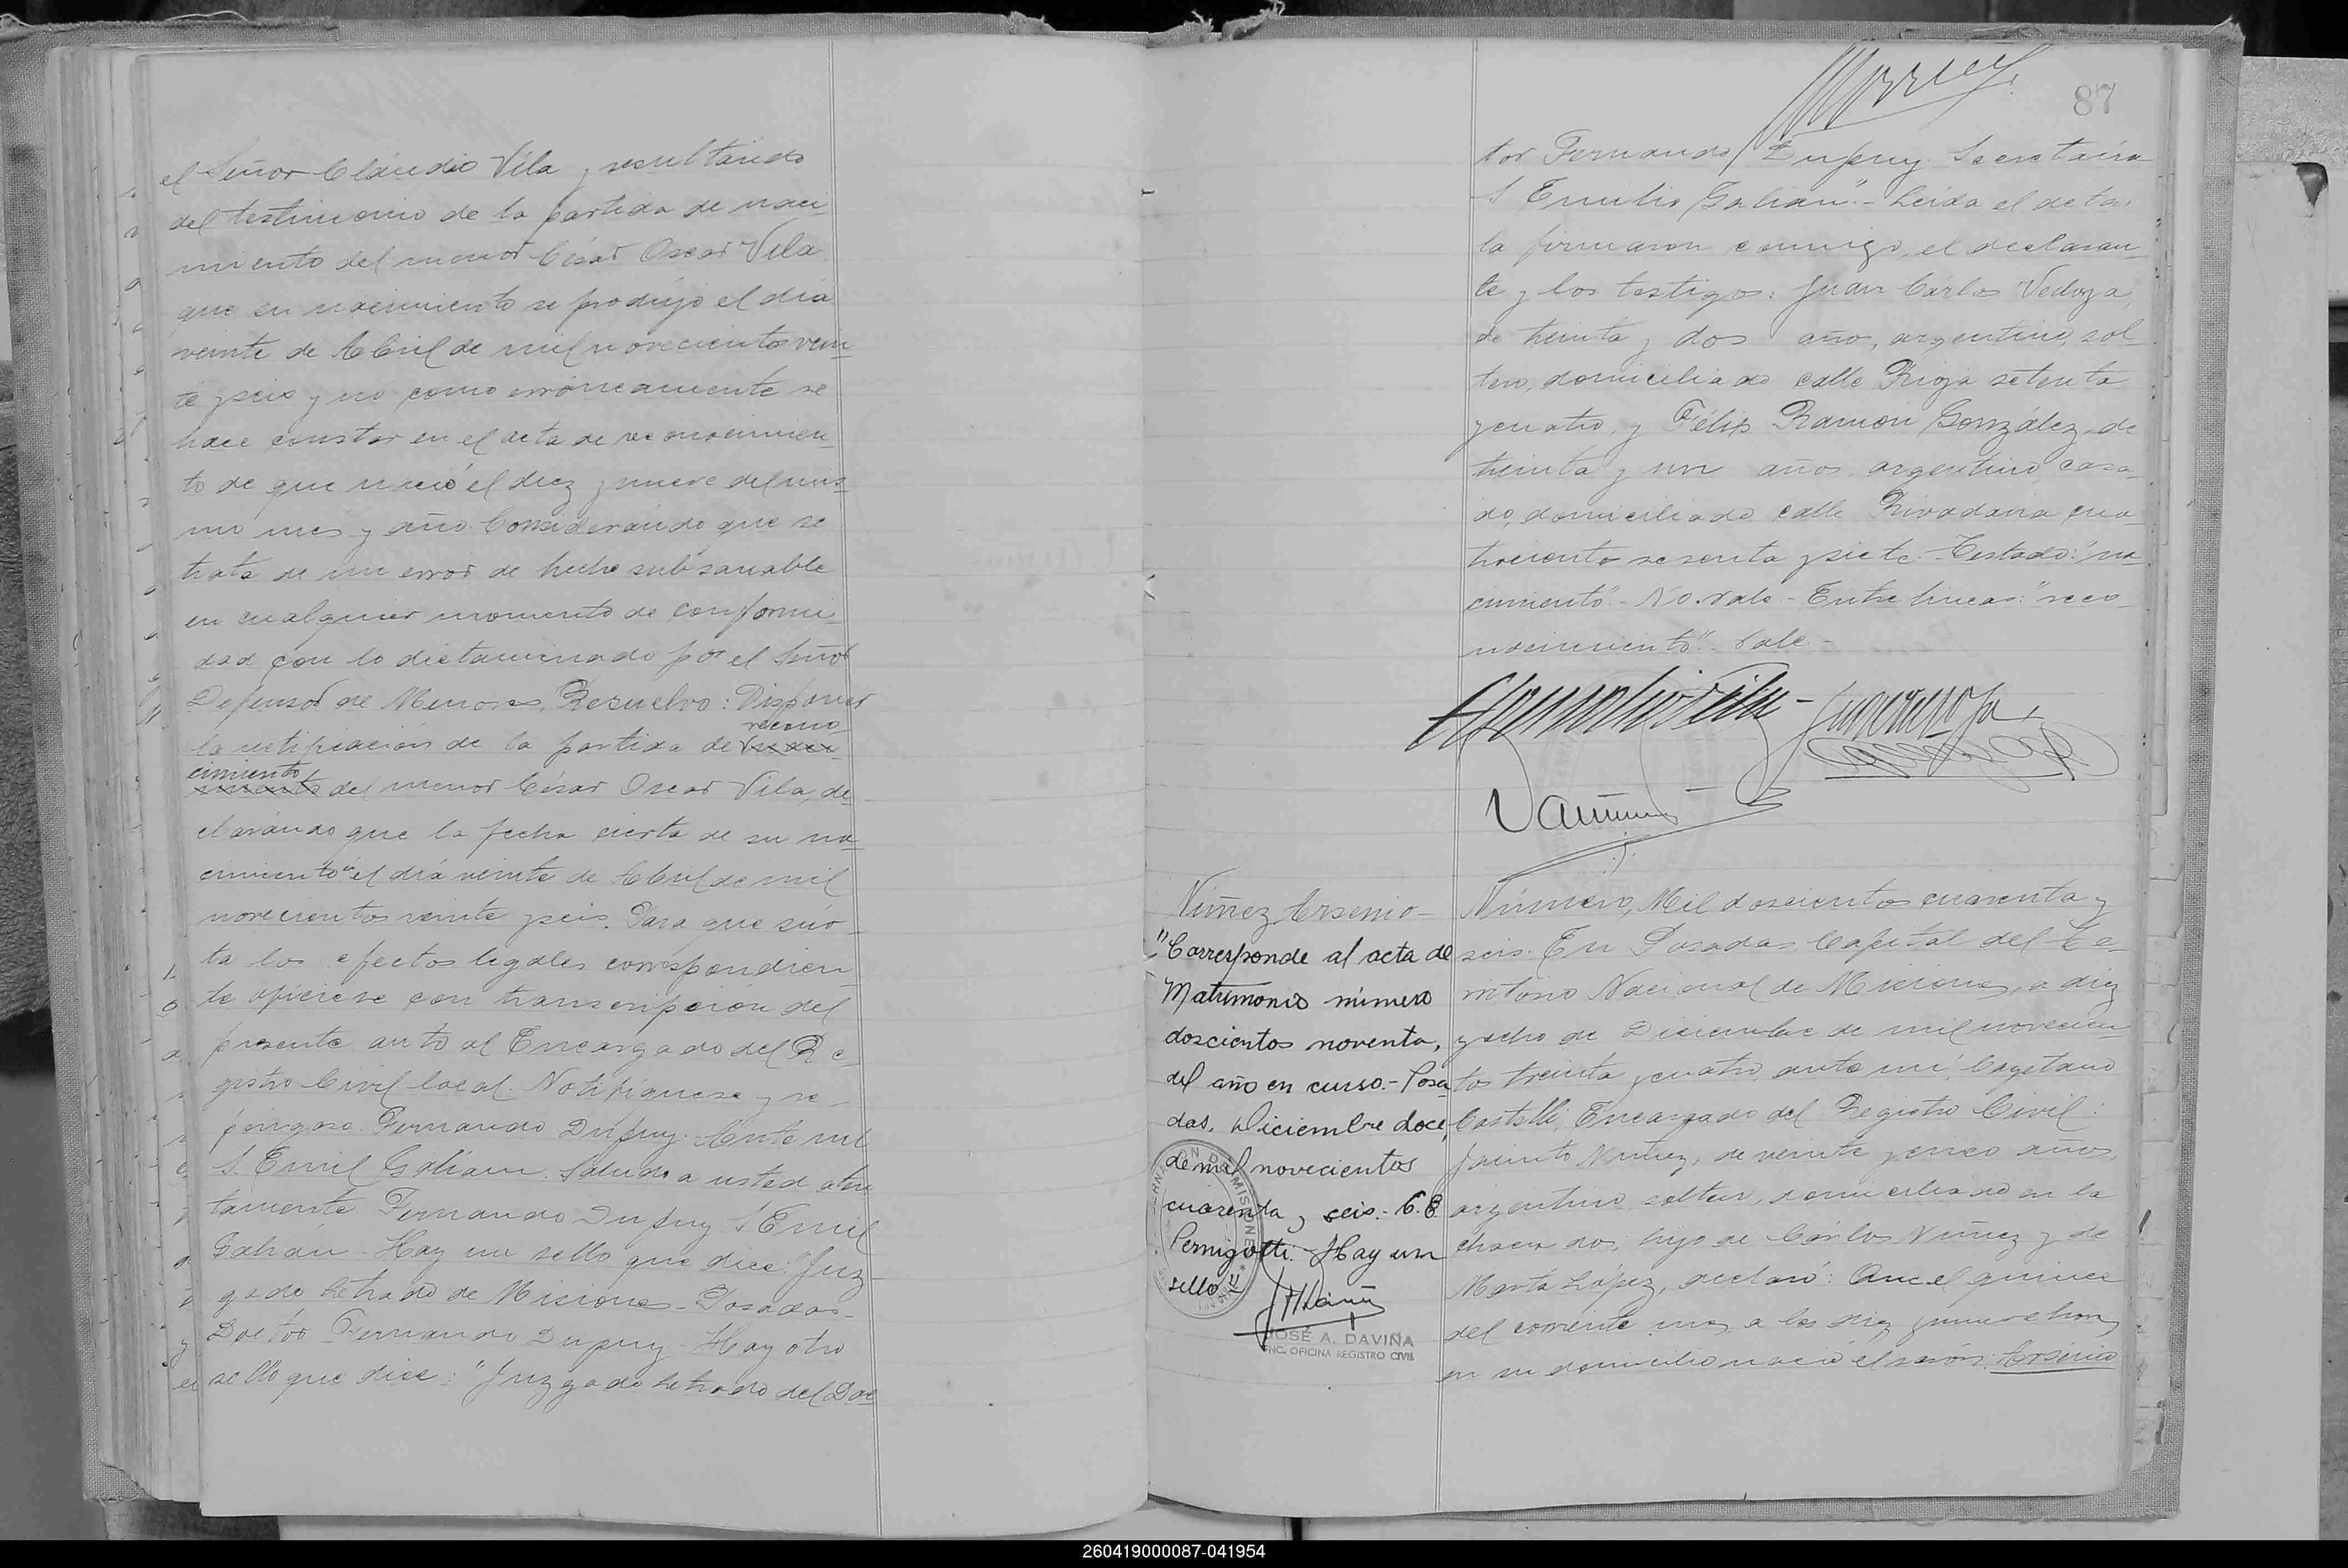 el Señor Cláudio Vila y resultando
del testimonio de la partida de naci-
miento del menor César Oscar Vila
que su nacimiento se produjo el día
veinte de Abril de mil novecientos vein-
te y seis y no como erróneamente se
hace constar en el acta de reconocimien-
to de que nació el diez y nueve del mis-
mo mes y año. Considerando que se
trata de un error de hecho subsanable
en cualquier momento de conformi-
dad con lo dictaminado por el Señor
Defensor de Menores, Resuelvo: Disponer
recono-
la rectificación de la partida de naci-
cimiento
miento del menor César Oscar Vila, de-
clarando que la fecha cierta de su na-
cimiento es el día veinte de Abril de mil
novecientos veinte y seis. Para que súr-
ta los efectos legales correspondien-
te ofíciese con transcripción del
presente auto al Encargado del Re-
gistro Civil local. Notifíquese y re-
póngase. Fernando Dupuy. Ante mí
S. Emil Galian. Saludo a usted aten-
tamente. Fernando Dupuy. S Emil
Galián. Hay un sello que dice: "Juz-
gado Letrado de Misiones - Posadas -
Doctor Fernando Dupuy - Hay otro
sello que dice: "Juzgado Letrado del Doc-
87
tor Fernando Dupuy Secretaría
S Emilio Galián" - Leída el acta,
la firmaron conmigo, el declaran-
te y los testigos: Juan Cárlos Vedoya,
de treinta y dos años, argentino, sol-
tero, domiciliado calle Rioja setenta
y cuatro, y Félix Ramón González, de
treinta y un años, argentino, casa-
do, domiciliado calle Rivadavia cua-
trociento sesenta y siete - Testado: "na-
cimiento" - No vale - Entre lineas: "reco-
nocimiento" - Vale. -
Núñez Arsenio -
"Corresponde al acta de
Matrimonio número
doscientos noventa,
del año en curso.- Posa-
das, Diciembre doce,
de mil novecientos
cuarenta y seis.- C. E.
Pernigotti.- Hay un
sello "
JOSÉ A. DAVIÑA
ENC. OFICINA REGISTRO CIVIL
Número, Mil doscientos cuarenta y
seis. En Posadas Capital del Te-
rritorio Nacional de Misiones, a diez
y ocho de Diciembre de mil novecien-
tos treinta y cuatro, ante mí, Cayetano
Castelli, Encargado del Registro Civil:
Jacinto Nuñez, de veinte y cinco años,
argentino, soltero, domiciliado en la
chacra dos, hijo de Cárlos Núñez y de
Marta López, declaró: Que el quince
del corriente mes, a las diez y nueve horas
en su domicilio nació el varón: Arsenio
260419000087-041954